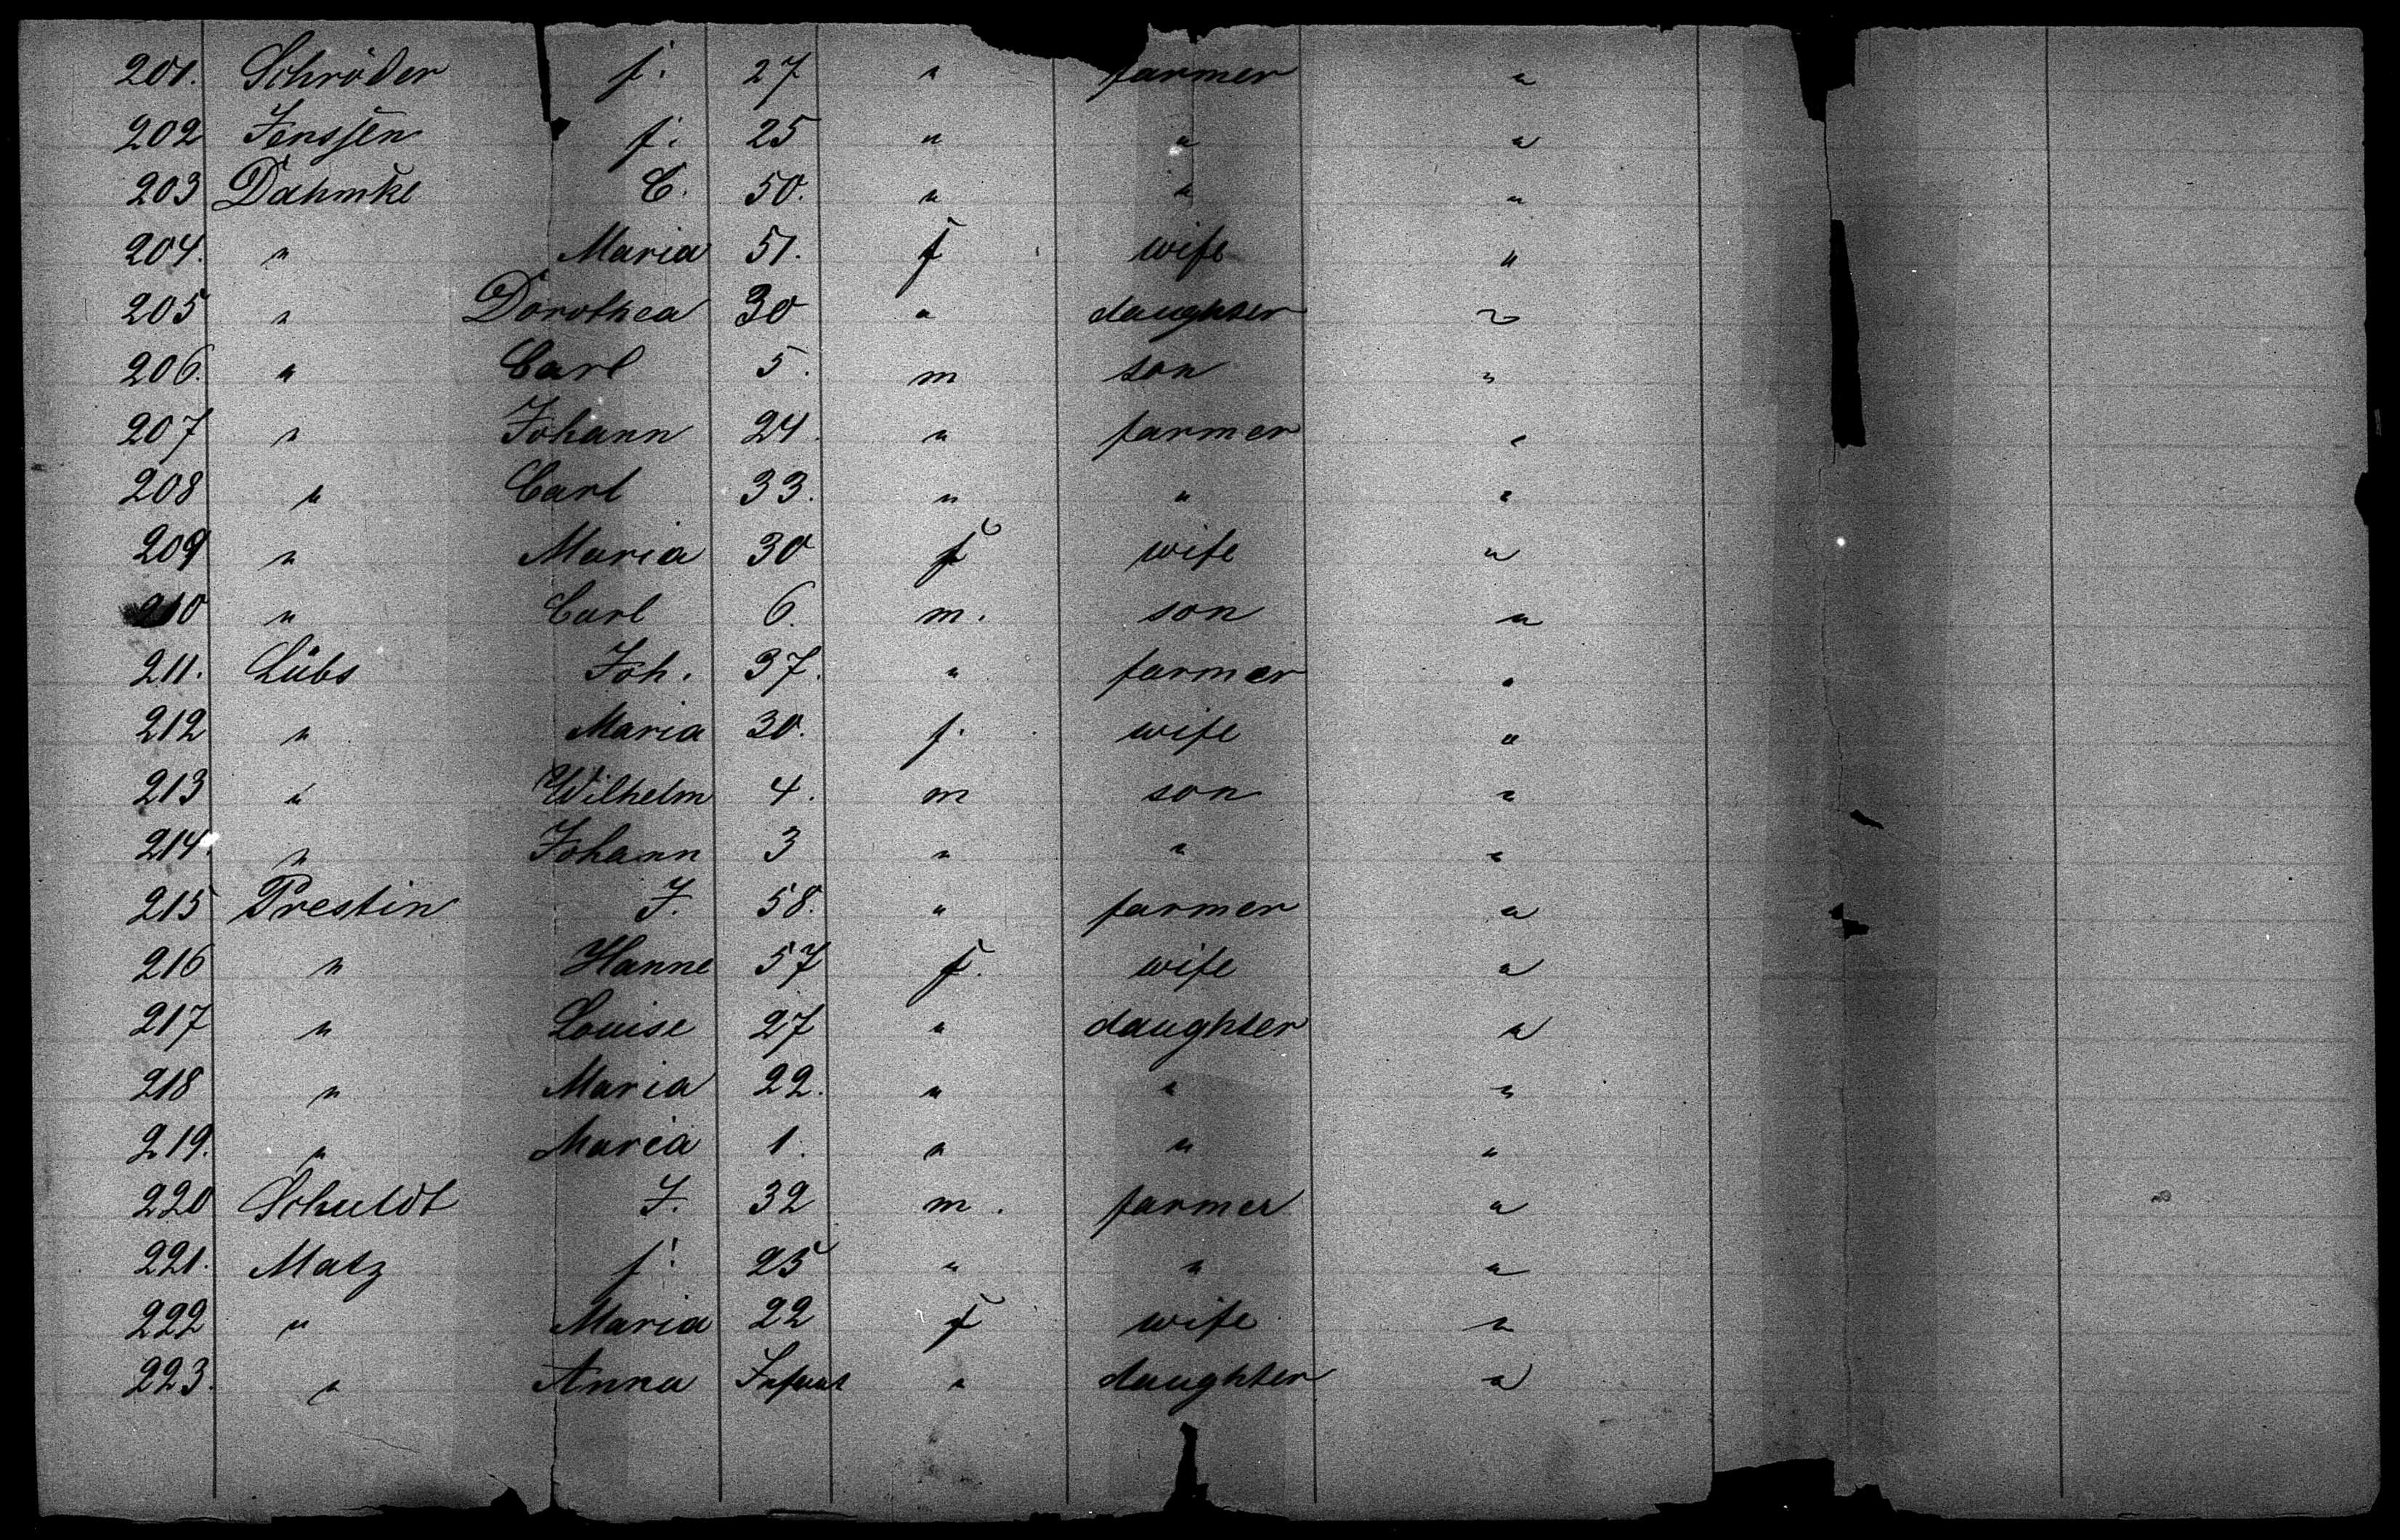 201. Schröder f. 27 " farmer "
202 Jenssen f. 25 " " "
203 Dahmke C. 50. " " "
204. " Maria 51. f wife "
205 " Dorothea 30 " daughter "
206. " Carl 5. m son "
207 " Johann 24. " farmer "
208 " Carl 33. " " "
209 " Maria 30 f wife "
210 " Carl 6. m. son "
211. Lübs Joh. 37. " farmer "
212 " Maria 30. f. wife "
213 " Wilhelm 4. m son "
214. " Johann 3 " " "
215 Prestin J. 58. " farmer "
216 " Hanne 57 f. wife "
217 " Louise 27 " daughter "
218 " Maria 22. " " "
219. " Maria 1. " " "
220 Schuldt J. 32 m. farmer "
221. Matz f. 25 " " "
222 " Maria 22 f wife "
223. " Anna Infant " daughter "